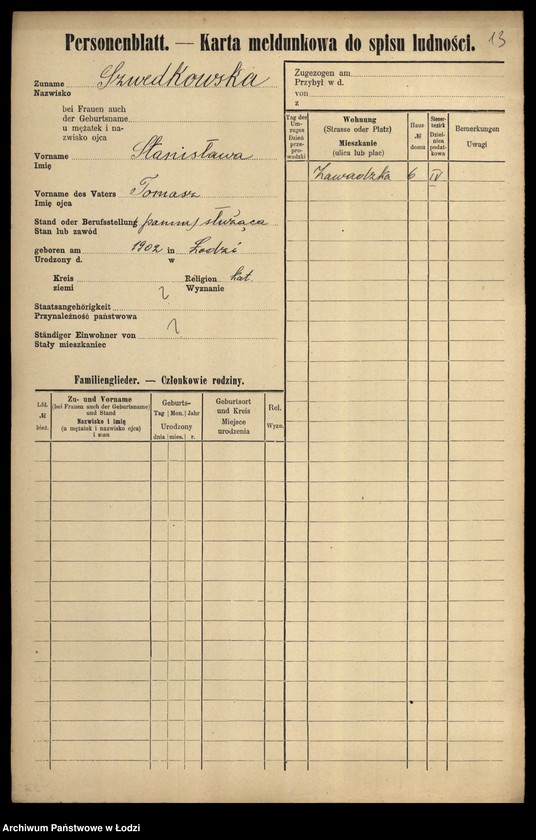 Personenblatt. — Karta meldunkowa do spisu ludności. 13
Zuname Szwedkowska
Nazwisko
bei Frauen auch
der Geburtsname
u mężatek i na-
zwisko ojca
Vorname Stanisława
Imię
Vorname des Vaters Tomasz
Imię ojca
Stand oder Berufsstellung (panna) służąca
Stan lub zawód
geboren am 1902 in Łodzi
Urodzony d. w
Kreis Religion Kat.
ziemi Wyznanie
Staatsangehörigkeit
Przynależność państwowa
Ständiger Einwohner von
Stały mieszkaniec
Zugezogen am
Przybył w d.
von
z
Tag des Um-zuges
Dzień prze-pro-wadzki
Wohnung
(Strasse oder Platz)
Mieszkanie
(ulica lub plac)
Haus-
№
domu
Steuer-bezirk
Dziel-nica podat-kowa
Bemerkungen
Uwagi
Zawadzka 6 IV
Familienglieder. — Członkowie rodziny.
№
bież.
Zu- und Vorname
(bei Frauen auch der Geburtsname)
und Stand
Nazwisko i imię
(u mężatek i nazwisko ojca)
i stan
Geburts-
Tag Mon. Jahr
Urodzony
dnia mies. r.
Geburtsort
und Kreis
Miejsce
urodzenia
Rel.
Wyzn.
Archiwum Państwowe w Łodzi